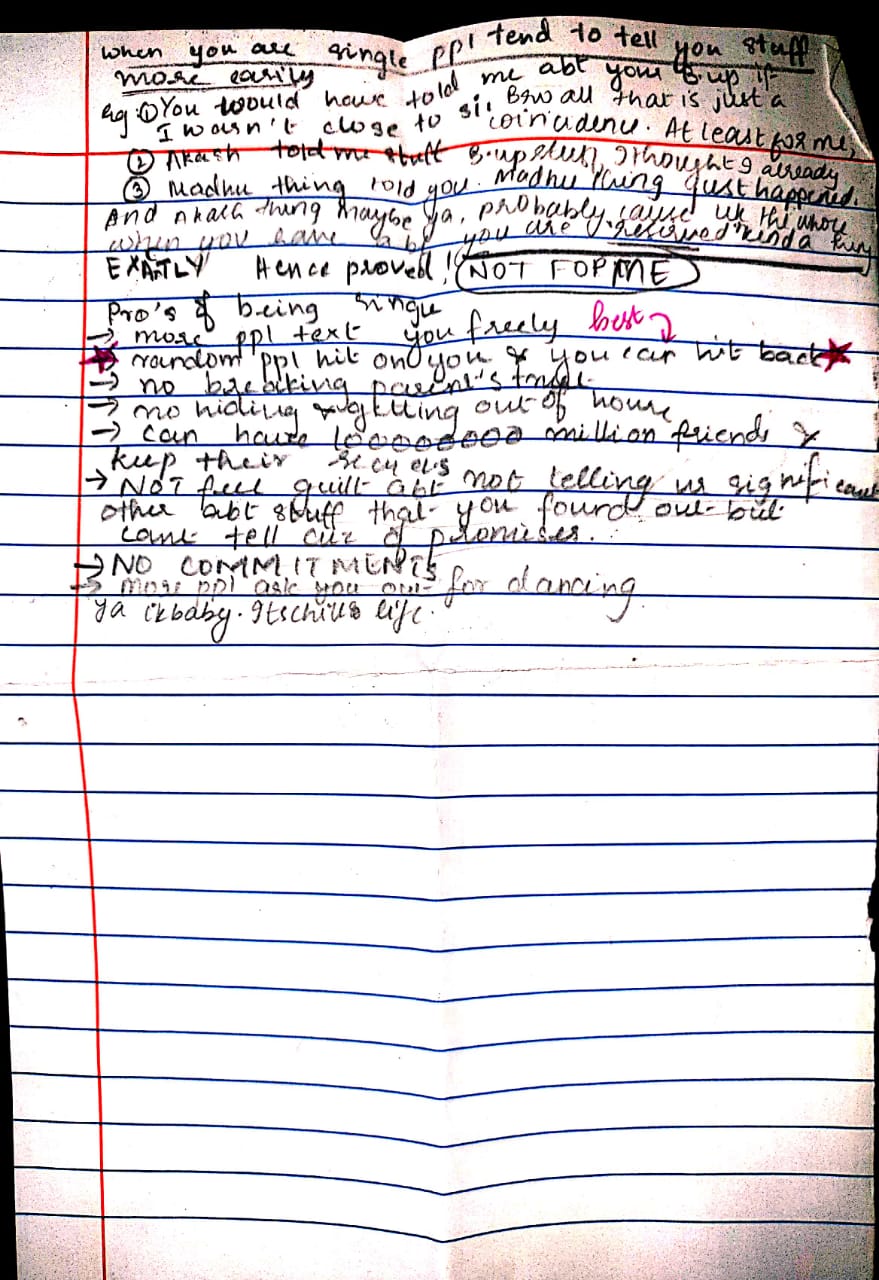 when you are single ppl tend to tell you stuff
more easily
eg ① You would have told me abt your B.up if
I wasn't close to si. Bro all that is just a
coincidence. At least for me,
② Akash told me stuff B.up stuff, I thought I already
③ Madhu thing told you. Madhu thing just happened.
And Akash thing maybe ya, probably cause uk the whole
when you have a bf you are "reserved" kinda thing
EXATLY Hence proved! (NOT FOR ME)
Pro's of being single
→ more ppl text you freely best
→ random ppl hit on you & you can hit back
→ no breaking parent's trust
→ no hiding & getting out of house
→ can have 100000000 million friends &
keep their secrets
→ NOT feel guilt abt not telling ur significant
other abt stuff that you found out but
cant tell cuz of promises.
→ NO COMMITMENTS
→ more ppl ask you out for dancing
ya ik baby. Its life.